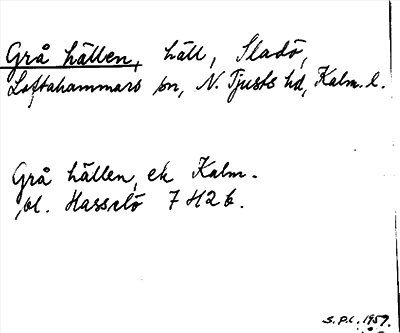 Grå hällen, häll, Sladö,
Loftahammars sn, N. Tjusts hd, Kalm. l.
Grå hällen, ek Kalm.
bl. Hasselö 7 H2b.
S.P.C. 1959.